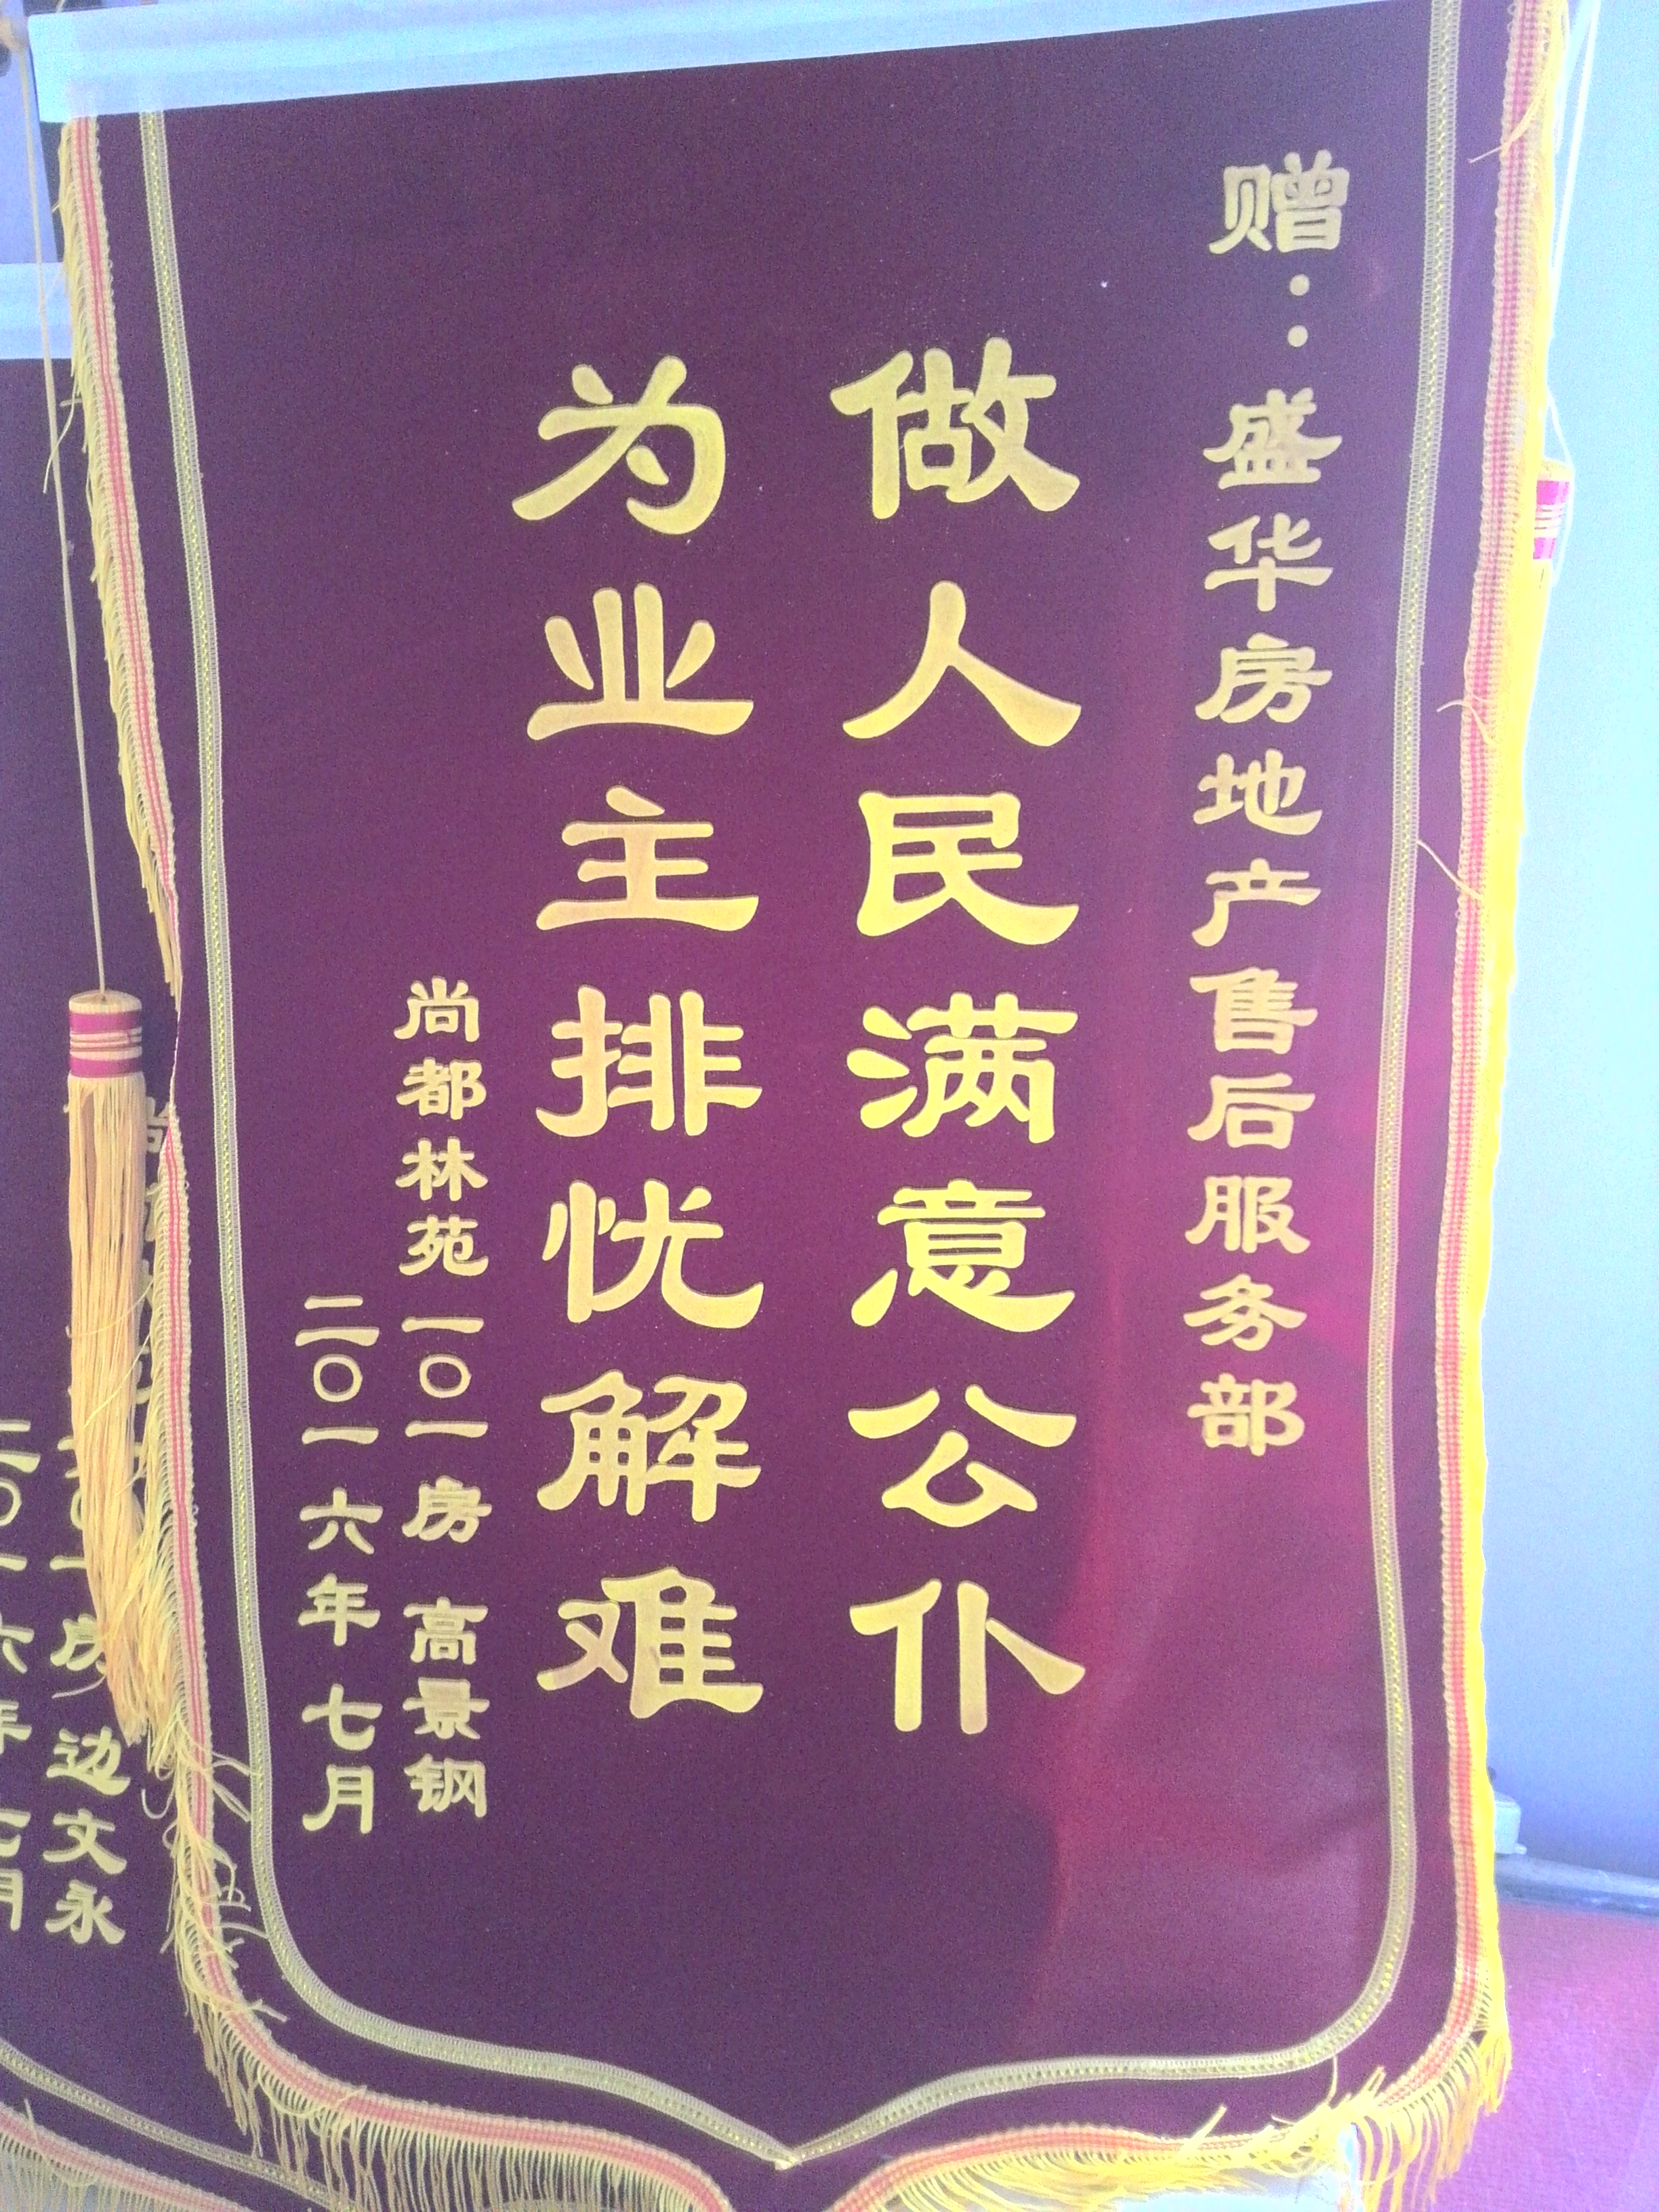 赠：盛华房地产售后服务部
做人民满意公仆
为业主排忧解难
尚都林苑一〇一房 高景钢
二〇一六年七月
房 边文永
二〇一六年七月